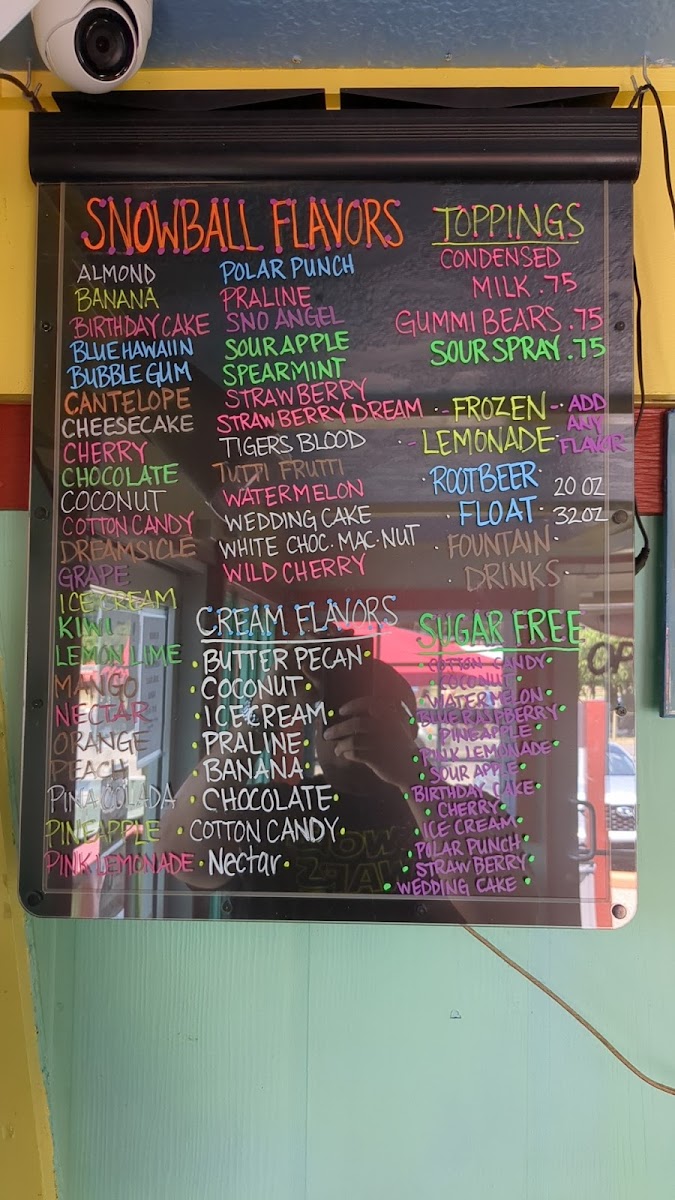 SNOWBALL FLAVORS
ALMOND
BANANA
BIRTHDAY CAKE
BLUE HAWAIIN
BUBBLE GUM
CANTELOPE
CHEESECAKE
CHERRY
CHOCOLATE
COCONUT
COTTON CANDY
DREAMSICLE
GRAPE
ICE CREAM
KIWI
LEMON LIME
MANGO
NECTAR
ORANGE
PEACH
PINA COLADA
PINEAPPLE
PINK LEMONADE
POLAR PUNCH
PRALINE
SNO ANGEL
SOUR APPLE
SPEARMINT
STRAWBERRY
STRAWBERRY DREAM
TIGERS BLOOD
TUTTI FRUTTI
WATERMELON
WEDDING CAKE
WHITE CHOC. MAC. NUT
WILD CHERRY
CREAM FLAVORS
BUTTER PECAN
COCONUT
ICE CREAM
PRALINE
BANANA
CHOCOLATE
COTTON CANDY
Nectar
TOPPINGS
CONDENSED
MILK .75
GUMMI BEARS .75
SOUR SPRAY .75
FROZEN
LEMONADE
ADD
ANY
FLAVOR
ROOTBEER
FLOAT
20 OZ
32OZ
FOUNTAIN
DRINKS
SUGAR FREE
COTTON CANDY
COCONUT
WATERMELON
BLUE RASPBERRY
PINEAPPLE
PINK LEMONADE
SOUR APPLE
BIRTHDAY CAKE
CHERRY
ICE CREAM
POLAR PUNCH
STRAWBERRY
WEDDING CAKE